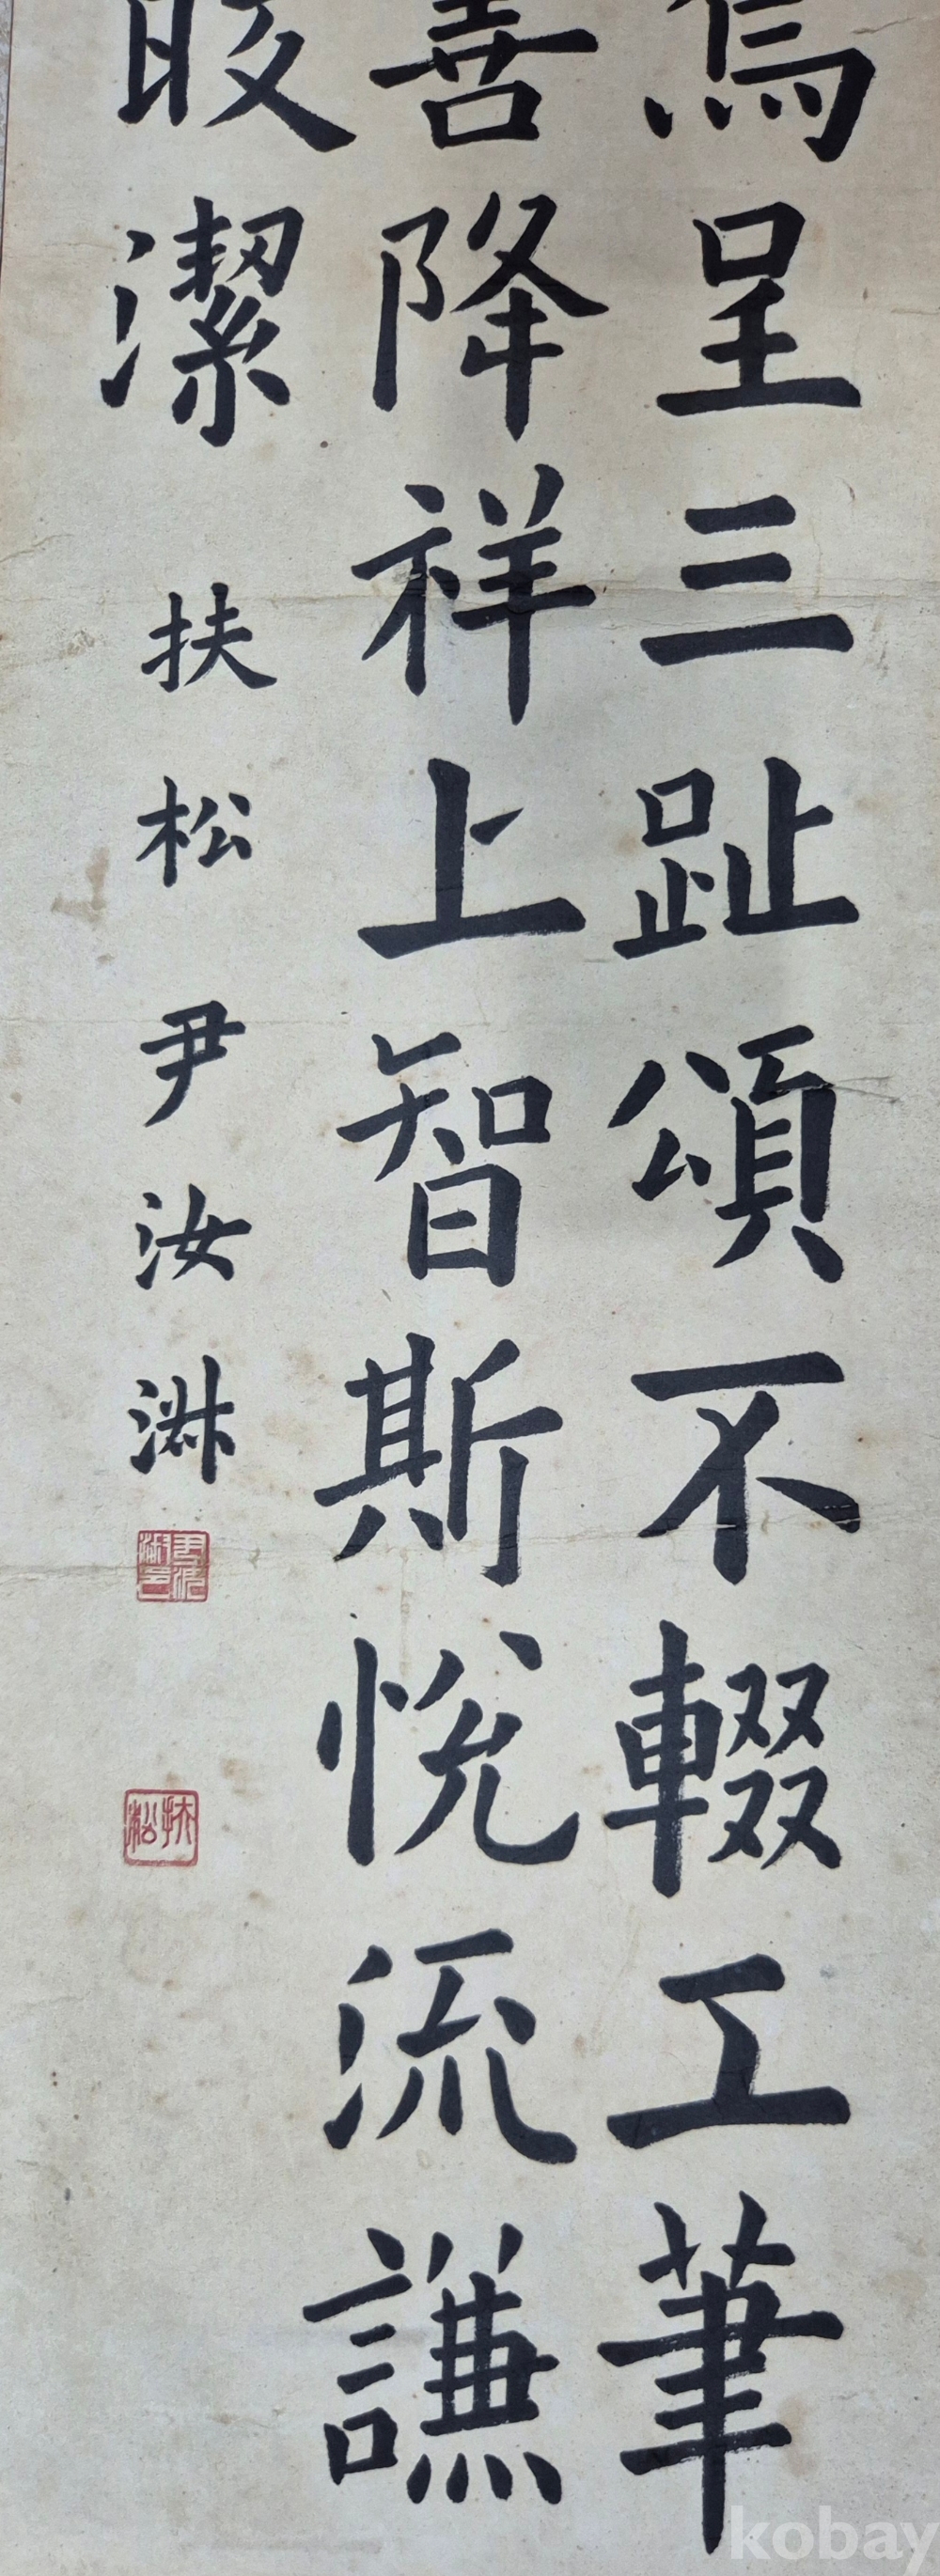 焉呈三趾頌不輟工筆
善降祥上智斯悅流謙
皎潔
扶松 尹汝淋
扶松
kobay